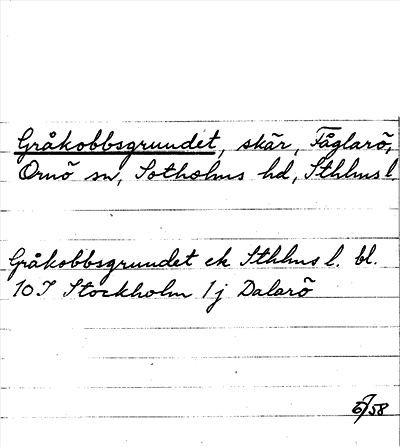 Gråkobbsgrundet, skär, Fåglarö,
Ornö sn, Sotholms hd, Sthlms l.
Gråkobbsgrundet ek Sthlms l. bl.
10 I Stockholm 1 j Dalarö
6/58